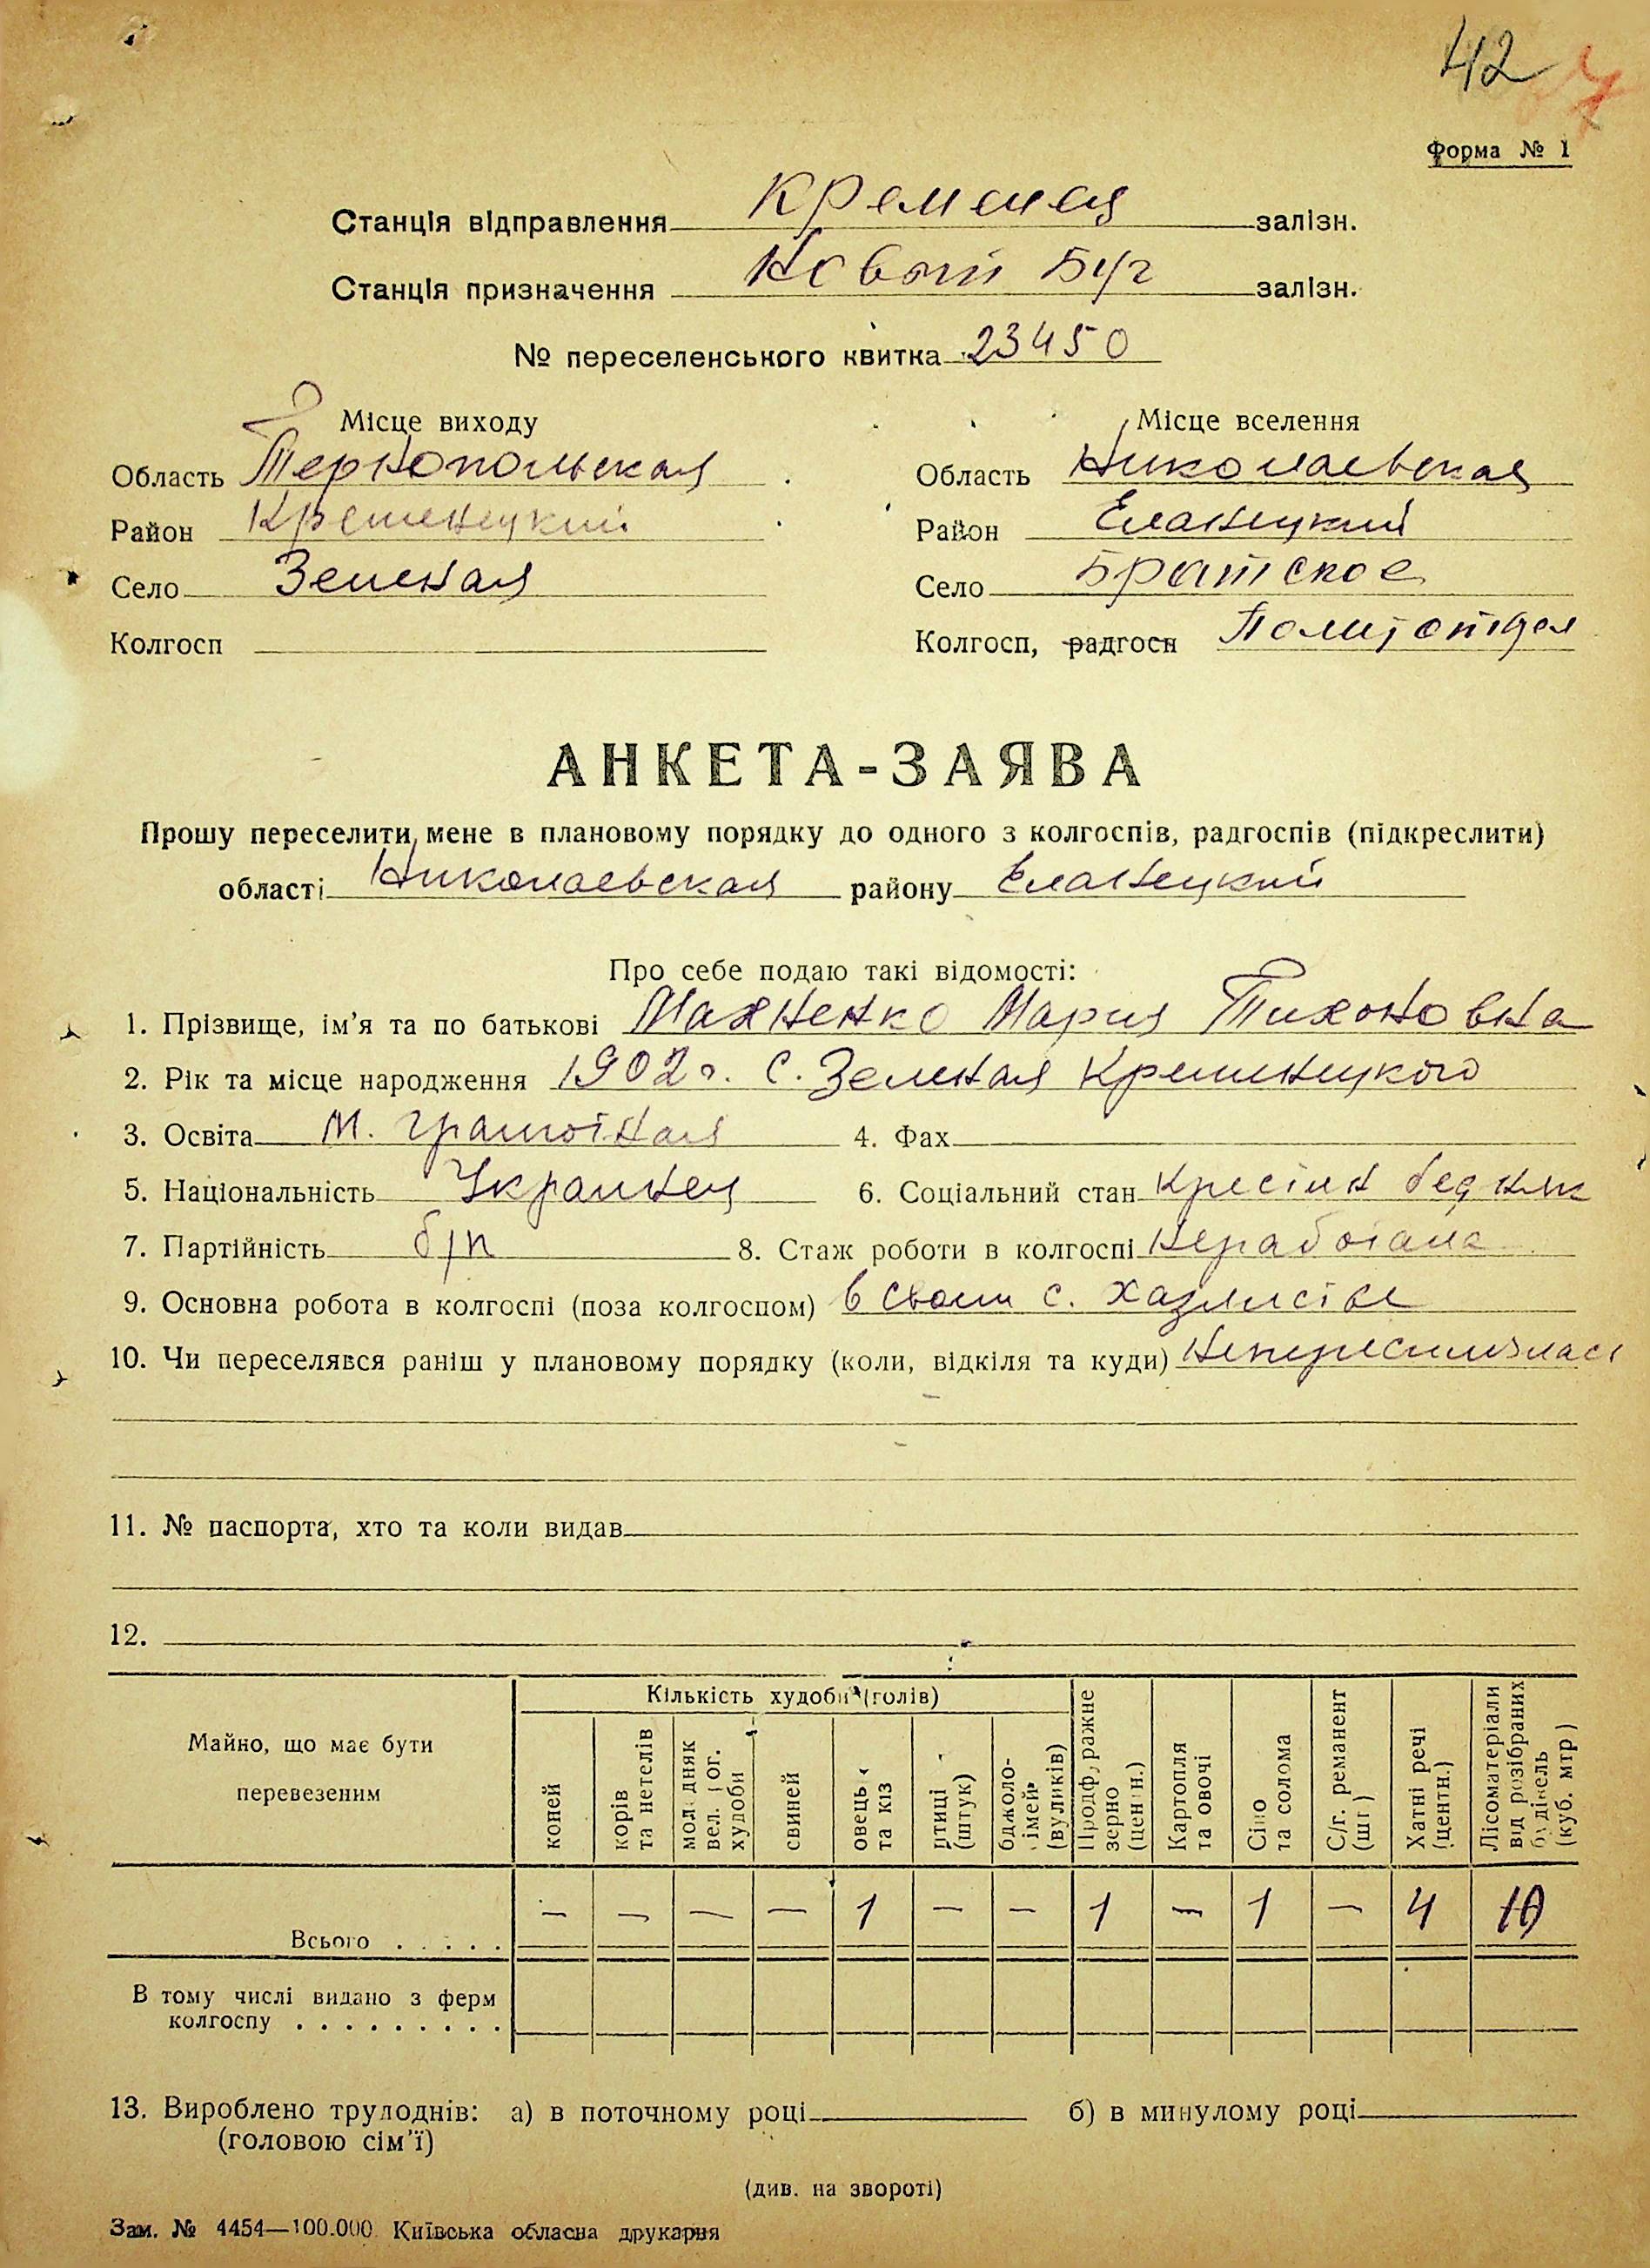 42
Форма № 1
Станція відправлення Кременец залізн.
Станція призначення Новый Буг залізн.
№ переселенського квитка 23450
Місце виходу
Область Тернопольская
Район Кременецкий
Село Зеленая
Колгосп
Місце вселення
Область Николаевская
Район Еланецкий
Село Братское
Колгосп, радгосп Политотдел
АНКЕТА-ЗАЯВА
Прошу переселити мене в плановому порядку до одного з колгоспів, радгоспів (підкреслити)
області Николаевская району Еланецкий
Про себе подаю такі відомості:
1. Прізвище, ім'я та по батькові Махненко Мария Тихоновна
2. Рік та місце народження 1902 г. с. Зеленая Кременецкого
3. Освіта м. грамотная 4. Фах
5. Національність Украинец 6. Соціальний стан Крестян бедняк
7. Партійність б/п 8. Стаж роботи в колгоспі Неработала
9. Основна робота в колгоспі (поза колгоспом) в своем с. хазяистве
10. Чи переселявся раніш у плановому порядку (коли, відкіля та куди) Непереселялась
11. № паспорта, хто та коли видав
12.
Майно, що має бути перевезеним
Кількість худоби (голів)
коней
корів та нетелів
молодняк вел. рог. худоби
свиней
овець та кіз
птиці (штук)
бджоло-сімей (вуликів)
Продфуражне зерно (центн.)
Картопля та овочі
Сіно та солома
С/г. реманент (шт)
Хатні речі (центн.)
Лісоматеріали від розібраних будівель (куб. мтр)
Всього . . . . . — — — — 1 — — 1 — 1 — 4 10
В тому числі видано з ферм
колгоспу . . . . . . . . .
13. Вироблено трудоднів: а) в поточному році б) в минулому році
(головою сім'ї)
(див. на звороті)
Зам. № 4454—100.000 Київська обласна друкарня